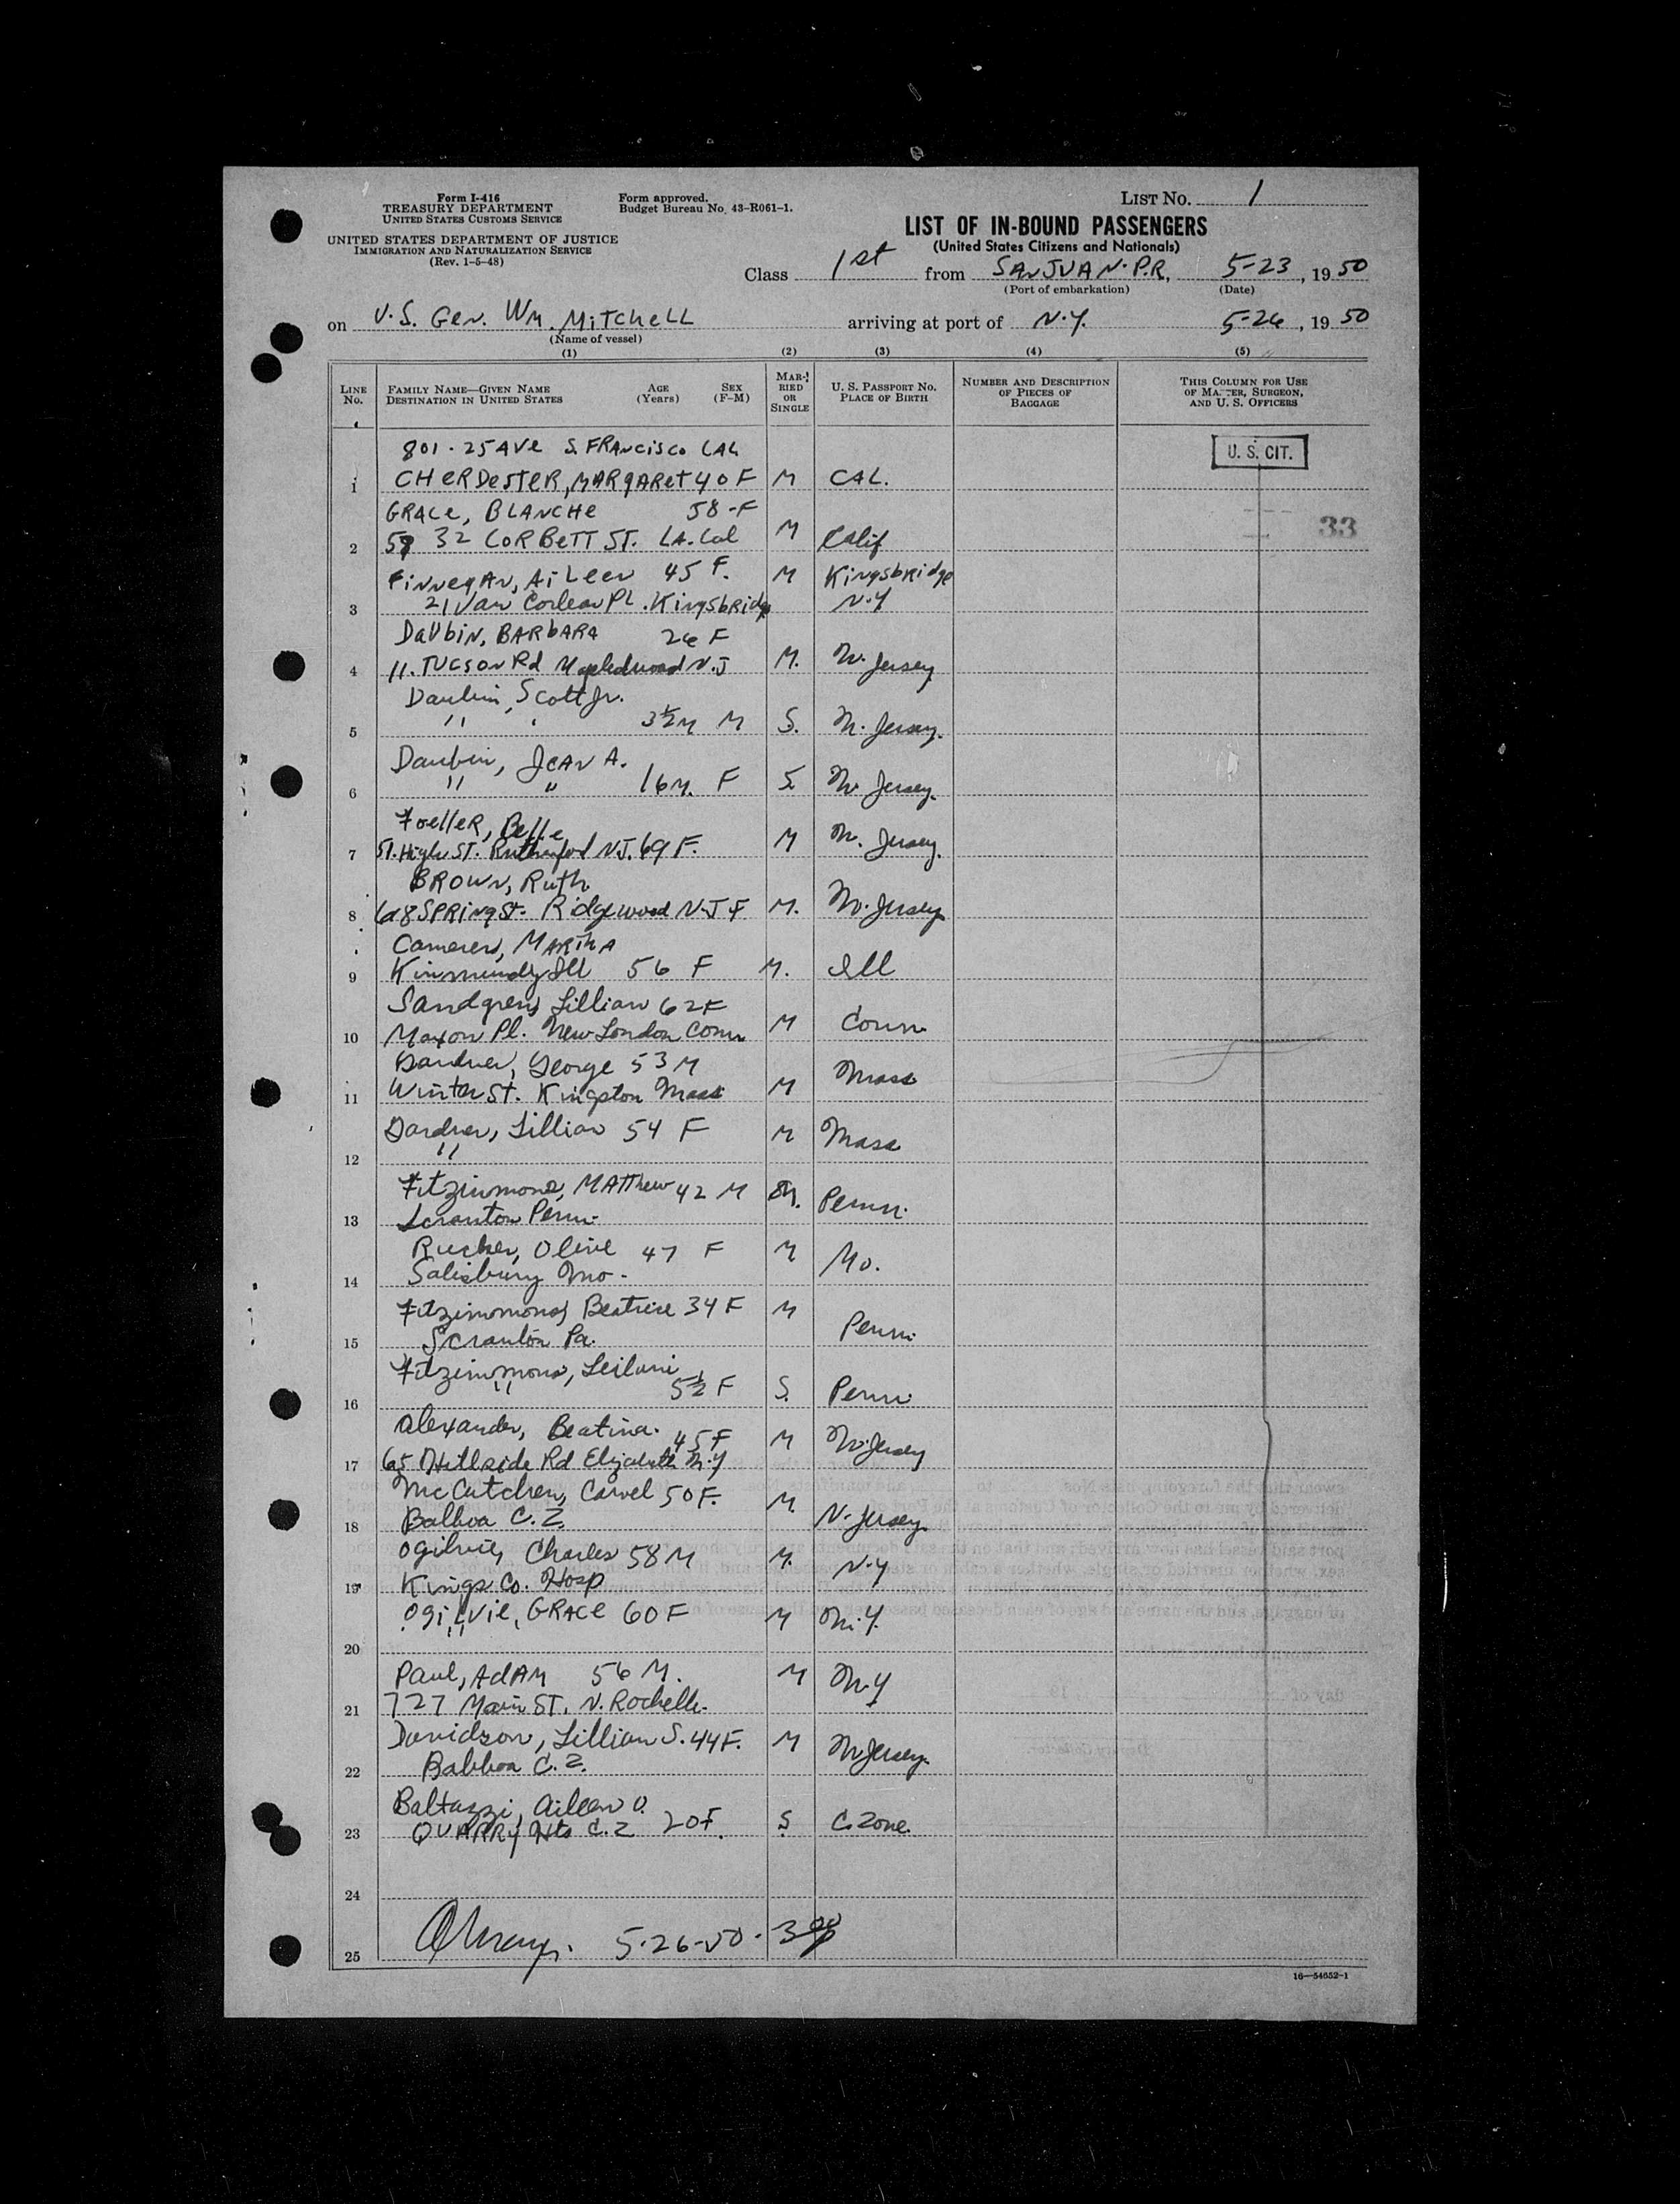 Form I-416
TREASURY DEPARTMENT
UNITED STATES CUSTOMS SERVICE
UNITED STATES DEPARTMENT OF JUSTICE
IMMIGRATION AND NATURALIZATION SERVICE
(Rev. 1-5-48)
Form approved.
Budget Bureau No. 43-R061-1.
LIST No. 1
LIST OF IN-BOUND PASSENGERS
(United States Citizens and Nationals)
Class 1st from SAN JUAN. P.R., 5-23, 1950
(Port of embarkation) (Date)
on U.S. Gen. Wm. Mitchell arriving at port of N.Y. 5-26, 1950
(Name of vessel)
(1) (2) (3) (4) (5)
LINE No. FAMILY NAME—GIVEN NAME DESTINATION IN UNITED STATES AGE (Years) SEX (F-M) MARRIED OR SINGLE U. S. PASSPORT No. PLACE OF BIRTH NUMBER AND DESCRIPTION OF PIECES OF BAGGAGE THIS COLUMN FOR USE OF MASTER, SURGEON, AND U. S. OFFICERS
801 - 25 AVE S. FRANCISCO CAL
U. S. CIT.
1 CHERDESTER, MARGARET 40 F M CAL.
GRACE, BLANCHE 58 - F
33
2 32 CORBETT ST. LA. Cal M Calif
FINNEGAN, AILEEN 45 F. M Kingsbridge
3 21 Van Corlear PL. Kingsbridge N.Y
DAUBIN, BARBARA 26 F
4 11. TUCSON Rd N.J M. N. Jersey
Daubin, Scott Jr.
5 " " 3½ M M S. N. Jersey.
Daubin, JEAN A.
6 " " 16 M. F S N. Jersey.
Foeller, Belle
7 51. High ST. Rutherford N.J. 69 F. M N. Jersey.
BROWN, Ruth
8 618 SPRING St. Ridgewood N.J F M. N. Jersey
Camerer, MARTHA
9 Kinmundy Ill 56 F M. Ill
Sandgren, Lillian 62 F
10 Maxon Pl. New London Conn M Conn
Gardner, George 53 M
11 Winter ST. Kingston Mass M Mass
Gardner, Lillian 54 F M Mass
12 "
Fitzimmons, MATThew 42 M M. Penn.
13 Scranton Penn.
Rucker, Olive 47 F M Mo.
14 Salisbury Mo.
Fitzimmons, Beatrice 34 F M
15 Scranton Pa. Penn.
Fitzimmons, Leilani
16 " 5½ F S. Penn
Alexander, Beatina. 45 F M N. Jersey
17 65 Hillside Rd Elizabeth N.Y
McCutchen, 50 F. M
18 Balboa C.Z. N. Jersey
Ogilvie, Charles 58 M M. N.Y
19 Kings Co. Hosp
OgilVie, GRACE 60 F M N.Y.
20 "
Paul, ADAM 56 M. M N.Y
21 727 Main ST. N. Rochelle.
Davidson, Lillian S. 44 F. M N Jersey.
22 Balboa C.Z.
Baltazzi, Aileen O.
23 QUARRY Hts C.Z 20 F. S C. Zone.
24
25 5-26-50.
16—54652-1